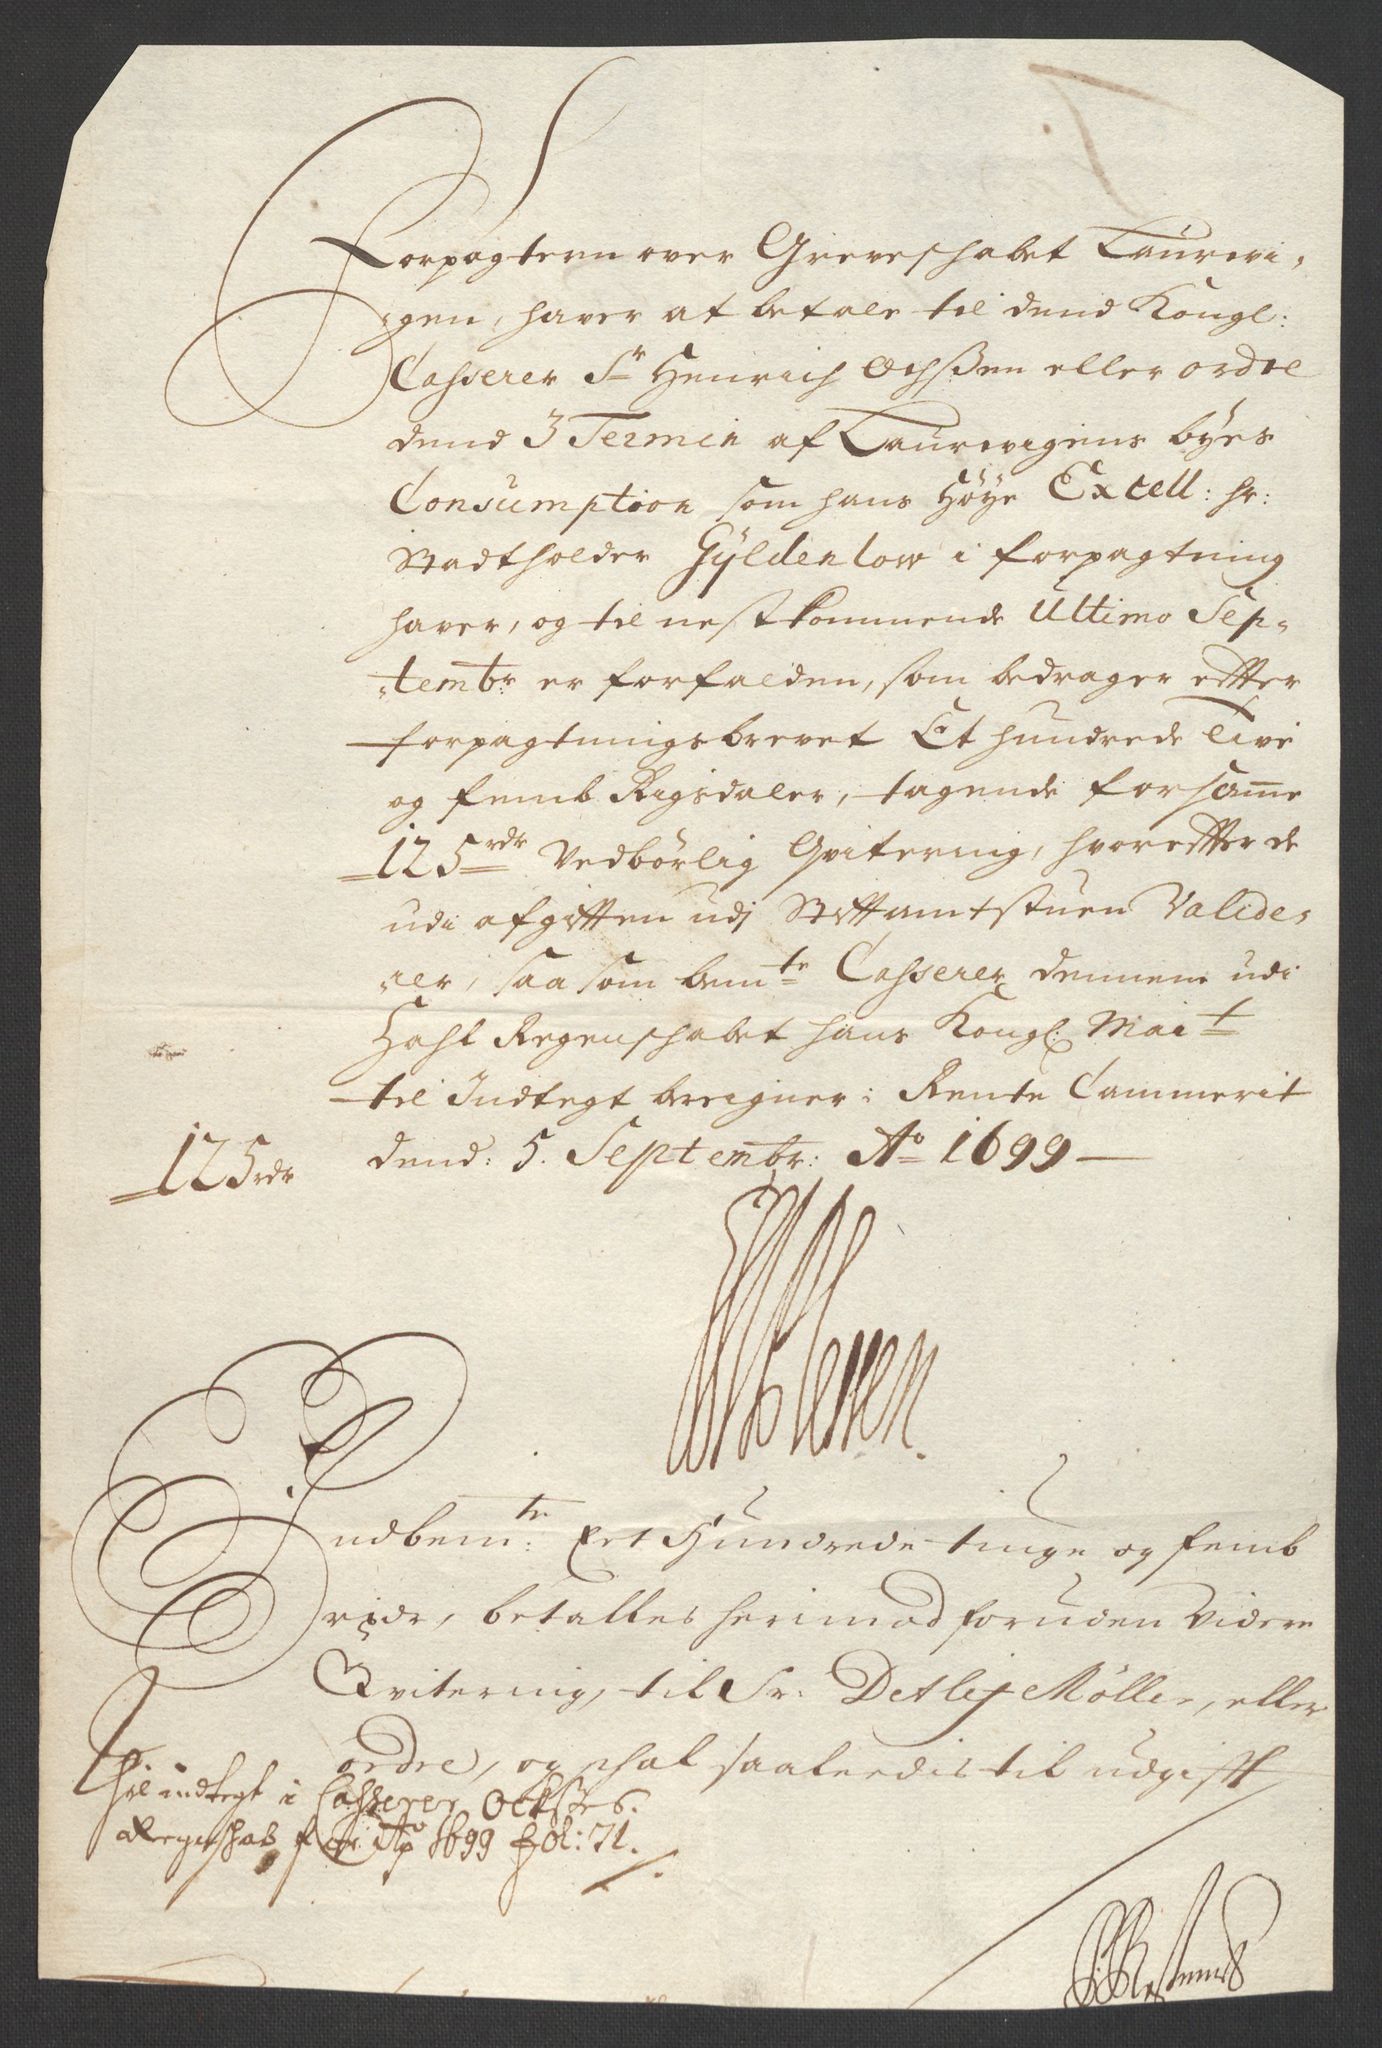 Forpagtern over Greveschabet Laurwi-
-gen, haver at betale til dend Kongl:
Casserer Sr Henrich Ochßen eller ordre
dend 3 Termin af Laurwigens byes
Consumption som hans Höye Excell: hr:
Stadtholder Gÿldenlow i forpagtning
haver, og til nestkommende Ultimo Sep-
-tembr er forfalden, som bedrager effter
forpagtningsbrevet Et hundrede Tive
og femb Rigsdaler, tagende for same
125 rdr Vedbörlig Qvitering, hvoreffter de
udi afgifften udj Stiftamtstuen Valide-
-rer, saa som bemte Casserer dennem udi
Zahl Regenschabet hans Kongl: Mait
til Indtegt beregner: Rente Cammerit
125 rdr dend: 5. Septembr: Ao 1699
Indbemte: Eet Hundrede tiuge og femb
rixdr, betalles herimod foruden videre
Qvitering, til Sr: Detlef Möller, eller
ordre, og schal saaledis til udgifft
til indtegt i Casserer Ochsens
Regenschab for Ao 1699 fol: 71.